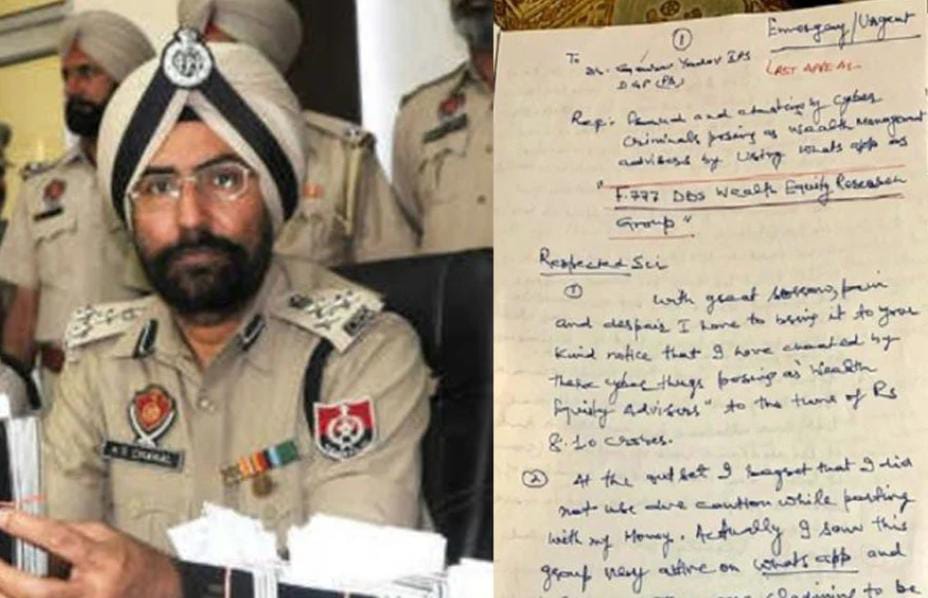 A S CHAHAL
①
Emergency/Urgent
To
Dr. Gaurav Yadav IPS
DGP (Pb)
LAST APPEAL..
Reg:. Fraud and cheating by Cyber
Criminals posing as Wealth Management
advisers by using whats app as
"F.777 DBS Wealth Equity Research
Group"
Respected Sir
① With great sorrow, pain
and despair I have to bring it to your
kind notice that I have cheated by
these cyber thugs posing as "Wealth
Equity Advisers" to the tune of Rs
8.10 crores.
② At the outset I regret that I did
not use due caution while parting
with my Money. Actually I saw this
group very active on whats app and
claiming to be